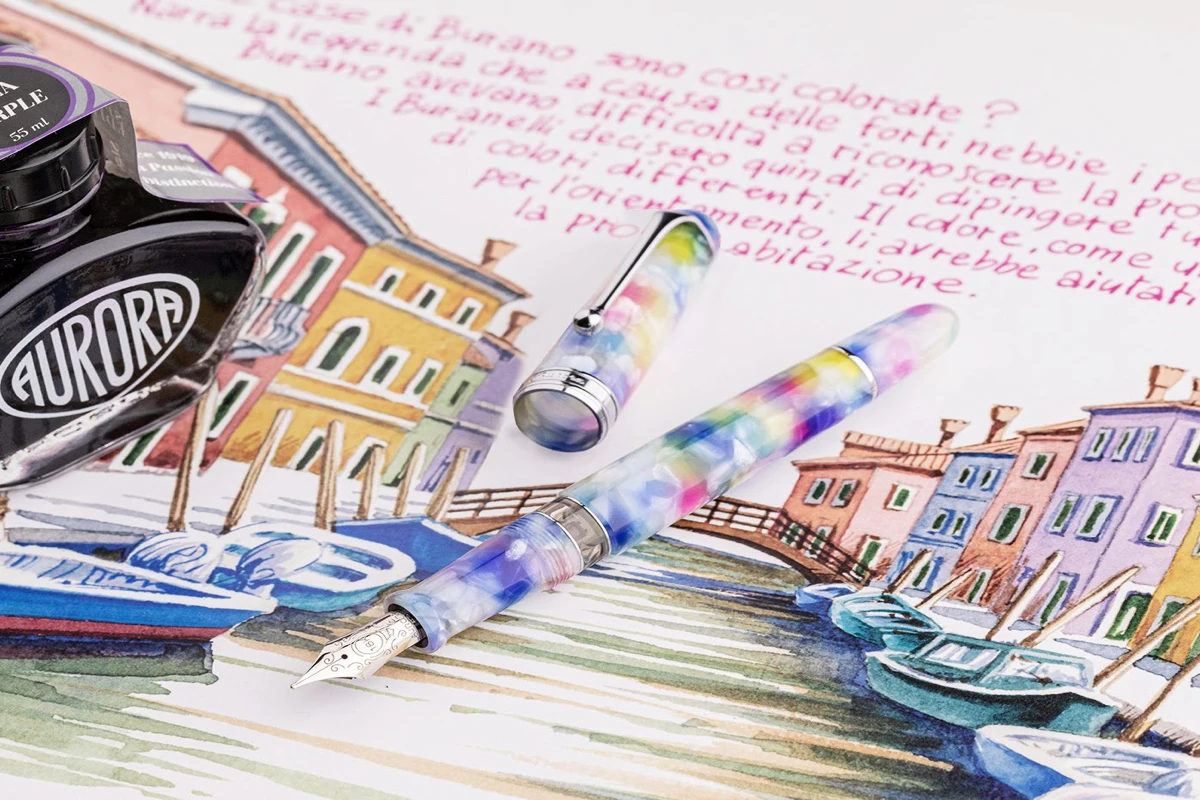 case di Burano sono così colorate ?
Narra la leggenda che a causa delle forti nebbie i
Burano avevano difficoltà a riconoscere la
I Buranelli decisero quindi di dipingere
di colori differenti. Il colore, come
per l'orientamento, li avrebbe
la abitazione.
55 ml
AURORA